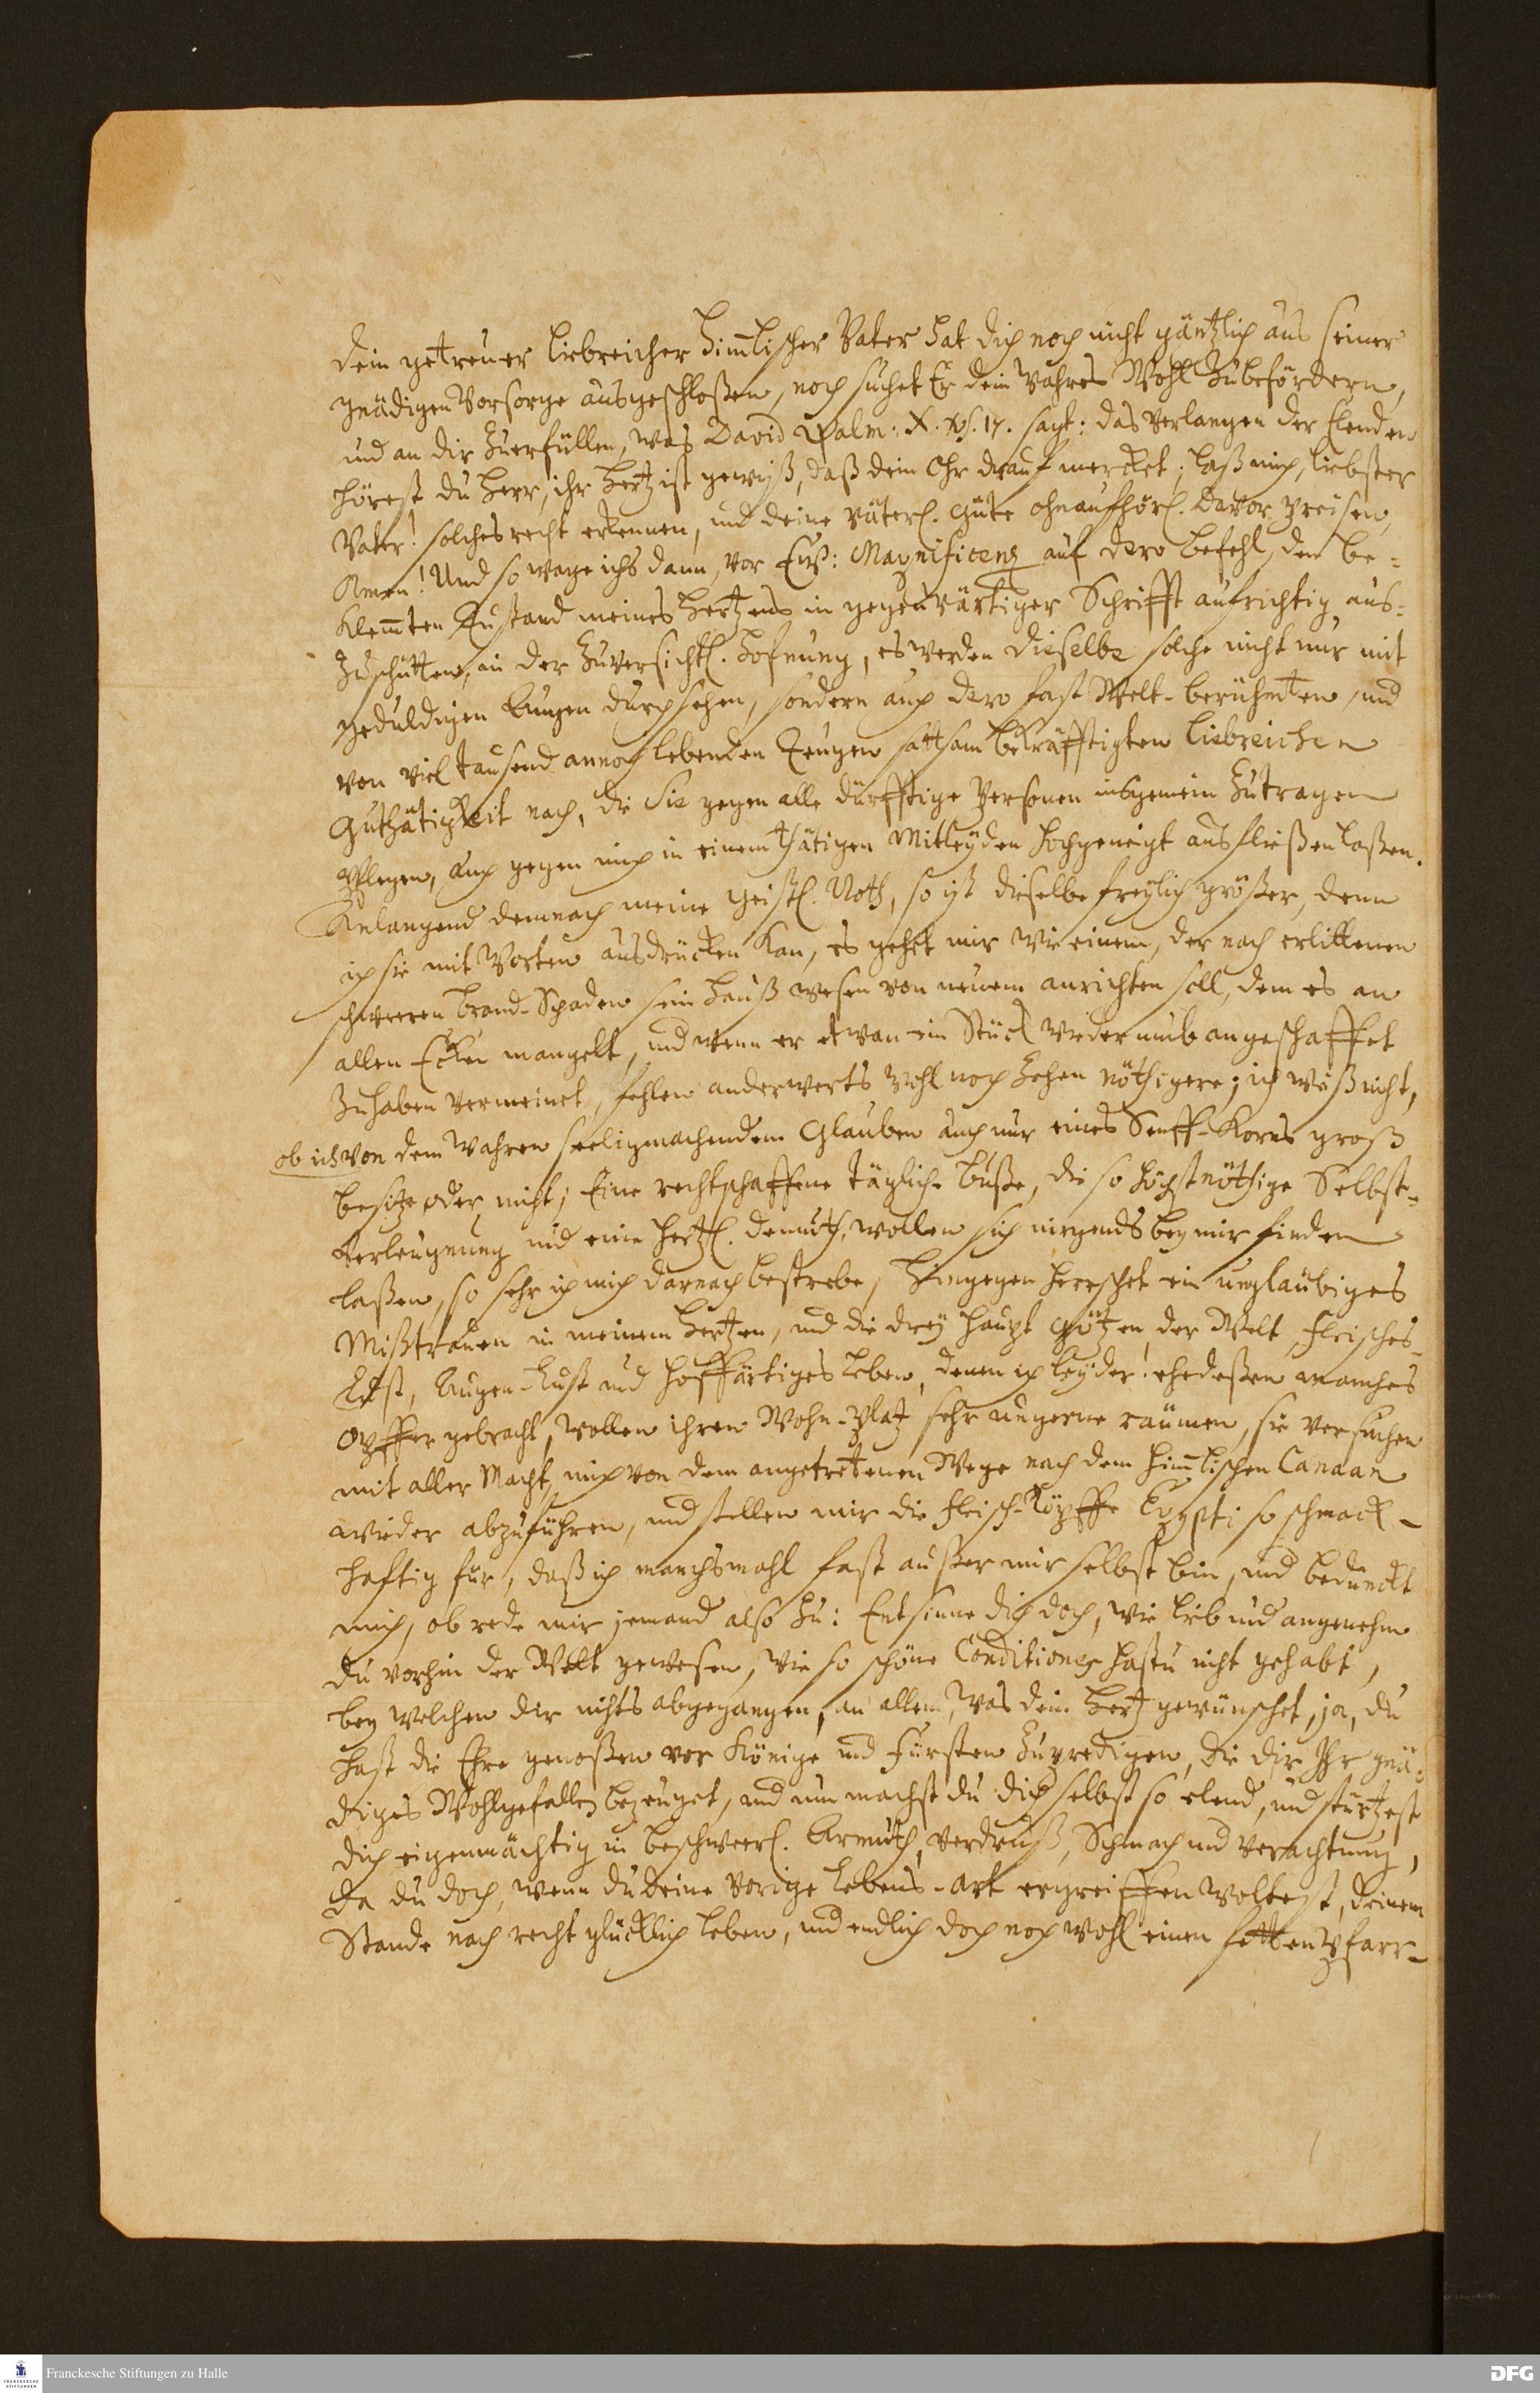 dein getreuer liebreicher Him̄lischer Vater hat dich noch nicht gäntzlich aus seiner
gnädigen Vorsorge ausgeschloßen, noch suchet Er dein wahres Wohl zubefördern,
und an dir zuerfüllen, was David Psalm: X. vs. 17. sagt: das Verlangen der Elenden
hörest du Herr, ihr Hertz ist gewiß, daß dein Ohr drauf mercket; laß mich, liebster
Vater! solches recht erkennen, und deine väterl. Güte ohnaufhörl. davor preisen,
Amen! Und so wage ichs dann, vor Ew: Magnificenz auf dero Befehl, den be-
klem̄ten Zustand meines Hertzens in gegenwärtiger Schrifft aufrichtig aus-
zuschütten, in der zuversichtl. Hofnung, es werden Dieselbe solche nicht nur mit
geduldigen Augen durchsehen, sondern auch dero fast Welt-berühmten, und
von viel tausend annoch lebenden Zeugen sattsam bekräfftigten liebreichen
Guthätigkeit nach, die Sie gegen alle dürfftige Personen insgemein zutragen
pflegen, auch gegen mich in einem thätigen Mitleyden hochgeneigt ausfließen laßen.
Anlangend demnach meine geistl. Noth, so ist dieselbe freylich größer, denn
ich sie mit Worten ausdrücken kan, es gehet mir wie einem, der nach erlittenen
schweren Brand-Schaden sein Hauß wesen von neuem anrichten soll, dem es an
allen Ecken mangelt, und wenn er etwan ein Stück wiederumb angeschaffet
zuhaben vermeinet, fehlen anderwerts wohl noch zehen nöthigere; ich weiß nicht,
ob ich von dem wahren seeligmachendem Glauben auch nur eines Senff-Korns groß
besitze oder nicht; Eine rechtschaffene tägliche Buße, die so höchstnöthige Selbst-
Verleugnung und eine hertzl. Demuth, wollen sich nirgends bey mir finden
laßen, so sehr ich mich darnach bestrebe, hingegen herrschet ein unglaubiges
Mißtrauen in meinem Hertzen, und die drey Haupt Götzen der Welt, Fleisches-
Lust, Augen-Lust und hoffärtiges Leben, denen ich leyder! ehedeßen manches
Opffer gebracht, wollen ihren Wohn-Platz sehr ungerne räumen, sie versuchen
mit aller Macht, mich von dem angetretenen Wege nach dem Him̄lischen Canaan
wieder abzuführen, und stellen mir die Fleisch-Töpffe Egypti so schmack-
hafftig für, daß ich manchsmahl fast außer mir selbst bin, und bedünckt
mich, ob rede mir jemand also zu: Entsinne dich doch, wie lieb und angenehm
du vorhin der Welt gewesen, wie so schöne Conditiones hastu nicht gehabt,
bey welchen dir nichts abgegangen, an allem, was dein Hertz gewünschet, ja, du
hast die Ehre genoßen vor Könige und Fürsten zupredigen, die dir Ihr gnä-
diges Wohlgefallen bezeuget, und nun machst du dich selbst so elend, und stürtzest
dich eigenmächtig in beschwerl. Armuth, Verdruß, Schmach und Verachtung,
da du doch, wenn du deine vorige Lebens-art ergreiffen woltest, deinem
Stande nach recht glücklich leben, und endlich doch noch wohl einen fetten Pfarr-
Franckesche Stiftungen zu Halle
DFG